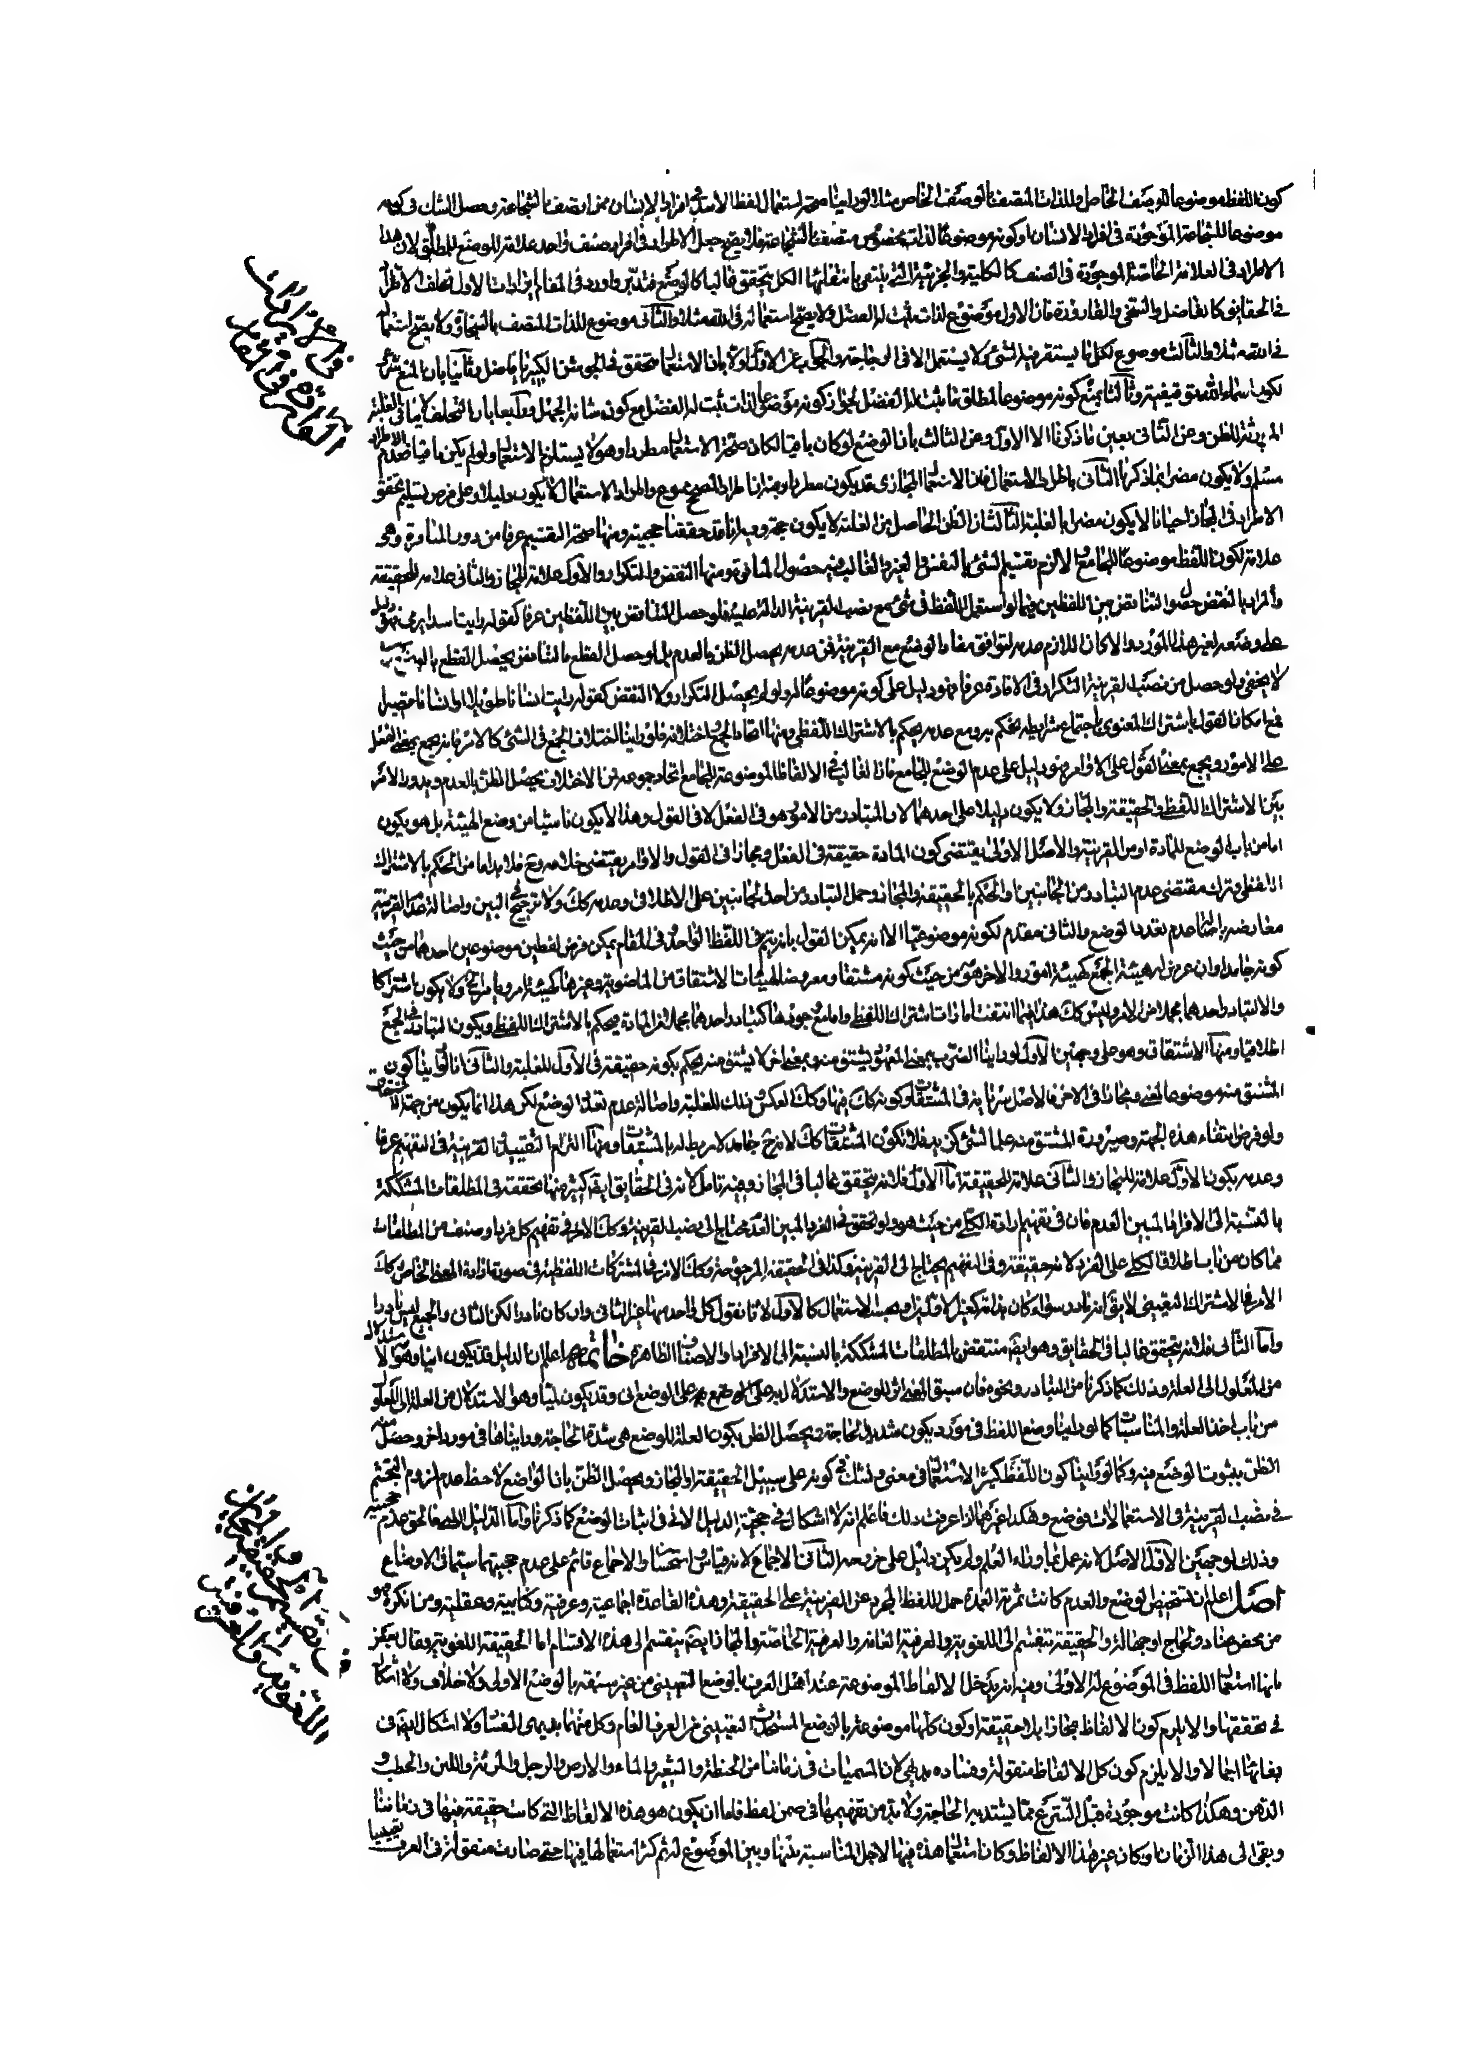 كون اللفظ موضوعا للوصف الخاص او للذات المتصف بالوصف الخاص مثلا لو راينا صحة استعمال لفظ الاسد في افراد الانسان ممن اتصف بالشجاعة وحصل الشك في كونه
موضوعا للشجاعة الموجودة في افراد الانسان او كونه موضوعا لذات مخصوص متصف بالشجاعة فلا يصح جعل الاطراد في افراد صنف واحد علامة للوضع للمطلق لان هذا
الاطراد في العلاقة الخاصة الموجودة في الصنف كالكلية والجزئية التي ينتفي بانتفائها الكل يتحقق غالبا كالوضع فتدبر واورد في المقام ايرادات الاول تخلف الاطراد
في الحقايق كالفاضل والسخي والقارورة فان الاول موضوع لذات ثبت له الفضل ولا يصح استعماله في الله مثلا والثاني موضوع للذات المتصف بالسخاوة ولا يصح استعماله
في الله مثلا والثالث موضوع لكل ما يستقر فيه الشيء ولا يستعمل الا في الزجاجة والجواب عن الاول اولا بان الاستعمال متحقق في الجوشن الكبير يا فاضل وثانيا بان المنع شرعي
لكون اسماء الله توقيفية وثالثا بمنع كونه موضوعا لمطلق ما ثبت له الفضل لجواز كونه موضوعا لذات ثبت له الفضل مع كون شانه الجهل ورابعا بان التخلف لا ينافي الغلبة
المورثة للظن وعن الثاني بعين ما ذكرنا الا الاول وعن الثالث بان الوضع لو كان باقيا لكان صحة الاستعمال مطردا وهو لا يستلزم الاستعمال ولو لم يكن باقيا فعدم الاطراد
مسلم ولا يكون مضرا بما ذكرنا الثاني
الاطراد في المجاز احيانا لا يكون مضرا بالغلبة الثالث ان الظن الحاصل من الغلبة لا يكون حجة وجوابه انا قد حققنا حجيته ومنها صحة التقسيم عرفا من دون المنافرة وهي
علامة لكون اللفظ موضوعا للجامع والا لزم تقسيم الشيء الى نفسه والى غيره والغالب فيه حصول المنافرة ومنها التناقض والتكرار والاول علامة المجاز والثاني علامة للحقيقة
والمراد بالتناقض حصول التناقض بين اللفظين فيما لو استعمل اللفظ في شيء مع نصب القرينة الدالة عليه فلو حصل التناقض بين اللفظين عرفا كقوله رايت اسدا يرمي فهو دليل
على وضعه لغير هذا المورد والا لكان اللازم عدمه لتوافق مفاد الوضع مع القرينة فمن عدمه يحصل الظن بالعدم بل لو حصل القطع بالتناقض يحصل القطع بالوضع
لا يخفى ولو حصل من نصب القرينة التكرار في الافادة عرفا فهو دليل على كونه موضوعا له ولو لم يحصل التكرار ولا التناقض كقوله رايت انسانا طويلا او انسانا قصيرا
فمع امكان القول باشتراك المعنوي باجتماع شرايطه يحكم به ومع عدمه يحكم بالاشتراك اللفظي ومنها اتحاد الجمع واختلافه فلو راينا اختلاف الجمع في الشيء كالامر فانه يجمع بمعنى الفعل
على الامور ويجمع بمعنى القول على الاوامر فهو دليل على عدم الوضع للجامع فان الغالب في الالفاظ الموضوعة للجامع اتحاد جموعه فمن الاختلاف يحصل الظن بالعدم ويدور الامر
بين الاشتراك اللفظي والحقيقة والمجاز ولا يكون دليلا على احدهما لان المتبادر من الامور هو في الفعل لا في القول وهذا لا يكون ناشيا من وضع الهيئة بل هو يكون
اما من باب الوضع للمادة او من القرينة والاصل الاولى يقتضي كون المادة حقيقة في الفعل ومجازا في القول والاوامر يقتضي خلافه وح فلا بد اما من الحكم بالاشتراك
اللفظي وترك مقتضى عدم التبادر من الجانبين والحكم بالحقيقة والمجاز وحمل التبادر من احد الجانبين على الاطلاق وعدمه كك ولا ترجيح في البين واصالة عدم القرينة
معارضة باصالة عدم تعدد الوضع والثاني مقدم لكونه موضوعيا الا انه يمكن القول بانه يتم في اللفظ الواحد وفي المقام يمكن فرض لفظين موضوعين احدهما من حيث
كونه جامدا وان عرض له هيئة الجمع كهيئة امور والاخر هو من حيث كونه مشتقا ومعروضا لهيئات الاشتقاق من الماضوية وغيرها كهيئة امر ويامر الخ ولا يكون اشتراكا
والا لتبادر احدهما مجملا من الامر وليس كك هذا فيما انتفت امارات اشتراك اللفظي واما مع وجودها كتبادر احدهما مجملا من المادة فيحكم بالاشتراك اللفظي ويكون المتبادر في الجمع
اطلاقيا ومنها الاشتقاق وهو على وجهين الاول لو راينا الضرب بمعنى المعهود يشتق منه وبمعنى اخر لا يشتق منه يحكم بكونه حقيقة في الاول للغلبة والثاني انا لو راينا كون
المشتق منه موضوعا لمعنى ومجازا في الاخر فالاصل سرايته في المشتقات وكونه كك فيها وكك العكس وذلك للغلبة واصالة عدم تعدد الوضع لكن هذا انما يكون من جهة المشتقات
ولو فرض انتفاء هذه الجهة وصيرورة المشتق منه علما لشيء كزيد فلا تكون المشتقات كك لانه ح جامد لا ربط له بالمشتقات ومنها التزام التقييد او القرينة في التفهيم عرفا
وعدمه يكون الاول علامة للمجاز والثاني علامة للحقيقة اما الاول فلانه يتحقق غالبا في المجاز وفيه تامل لانه في الحقايق ايض كثير منها تحققه في المطلقات المشككة
بالنسبة الى الافراد المبين العدم فان في تفهيم ارادة الكلي من حيث هو ولو تحقق في الفرد المبين العدم محتاج الى نصب القرينة وكك الامر في تفهيم كل فرد او صنف من المطلقات
مما كان من باب اطلاق الكلي على الفرد لانه حقيقة وفي التفهيم يحتاج الى القرينة وكذا في الحقيقة المرجوحة وكك الامر في المشتركات اللفظية في صورة ارادة المعنى الخاص كك
الامر في الاشتراك التعييني لا يق انه نادر سواء كان
واما الثاني فلانه يتحقق غالبا في الحقايق وهو ايض منتقض بالمطلقات المشككة بالنسبة الى الافراد والاصناف الظاهرة خاتمة اعلم ان الدليل قد يكون انيا وهو الاستدلال
من المعلول الى العلة وذلك كما ذكرنا من التبادر ونحوه فان سبق المعنى اثر للوضع والاستدلال به على الوضع اني وقد يكون لميا وهو الاستدلال من العلة الى المعلول
من باب اخذ العلة والمناسبات كما لو راينا وضع اللفظ في مورد يكون شديد الحاجة ويحصل الظن بكون العلة للوضع هي شدة الحاجة وراينا ها في مورد اخر وحصل منه
الظن بثبوت الوضع فيه وكما لو راينا كون اللفظ كثير الاستعمال في معنى ونشك في كونه على سبيل الحقيقة او المجاز ويحصل الظن بان الواضع لاحظ عدم لزوم التجشم
في نصب القرينة في الاستعمالات فوضع وهكذا غيرهما اذا عرفت ذلك فاعلم انه لا اشكال في حجية الدليل الاني في اثبات الوضع كما ذكرنا واما الدليل اللمي فالحق عدم حجيته
وذلك لوجهين الاول الاصل لانه عمل بما وراء العلم ولم يكن دليل على خروجه الثاني الاجماع لانه قياس واستحسان والاجماع قائم على عدم حجيتهما سيما في الاوضاع
اصل اعلم ان تشخيص الوضع والعدم كانت ثمرته العمدة حمل اللفظ المجرد عن القرينة على الحقيقة وهذه القاعدة اجماعية وعرفية وكتابية وعقلية ومن انكره فهو
من محض عناد ولجاج او جهالة والحقيقة تنقسم الى اللغوية والعرفية العامة والعرفية الخاصة والمجاز ايض ينقسم الى هذه الاقسام اما الحقيقة اللغوية وقال بعض
بانها استعمال اللفظ في الموضوع له الاولى وفيه انه يدخل الالفاظ الموضوعة عند اهل العرف بالوضع التعييني من غير سبقه بالوضع الاولى ولا خلاف ولا اشكال
في تحققها والا يلزم كون الالفاظ مجازا بلا حقيقة او كون كلها موضوعة بالوضع المستحدث التعييني من العرف العام وكل منهما بديهي الفساد ولا اشكال ايض في
بقائها اجمالا والا يلزم كون كل الالفاظ منقولة وفساده بديهي لان المسميات في زماننا من الحنطة والشعير والماء والارض والرجل والمرئة واللبن والحطب و
الدهن وهكذا كانت موجودة قبل الشرع مما يشتد به الحاجة ولا بد من تفهيمها في ضمن لفظ فاما ان يكون هو هذه الالفاظ التي كانت حقيقة فيها في زماننا
وبقي الى هذا الزمان او كان غير هذا الالفاظ وكان استعمال هذه فيها لاجل المناسبة بينها وبين الموضوع له ثم كثر استعمالها فيها حتى صارت منقولة في العرف تعيينيا
في الايرادات
الواقعة في المقام
في تقسيم الحقيقة والمجاز الى
اللغوية والعرفية